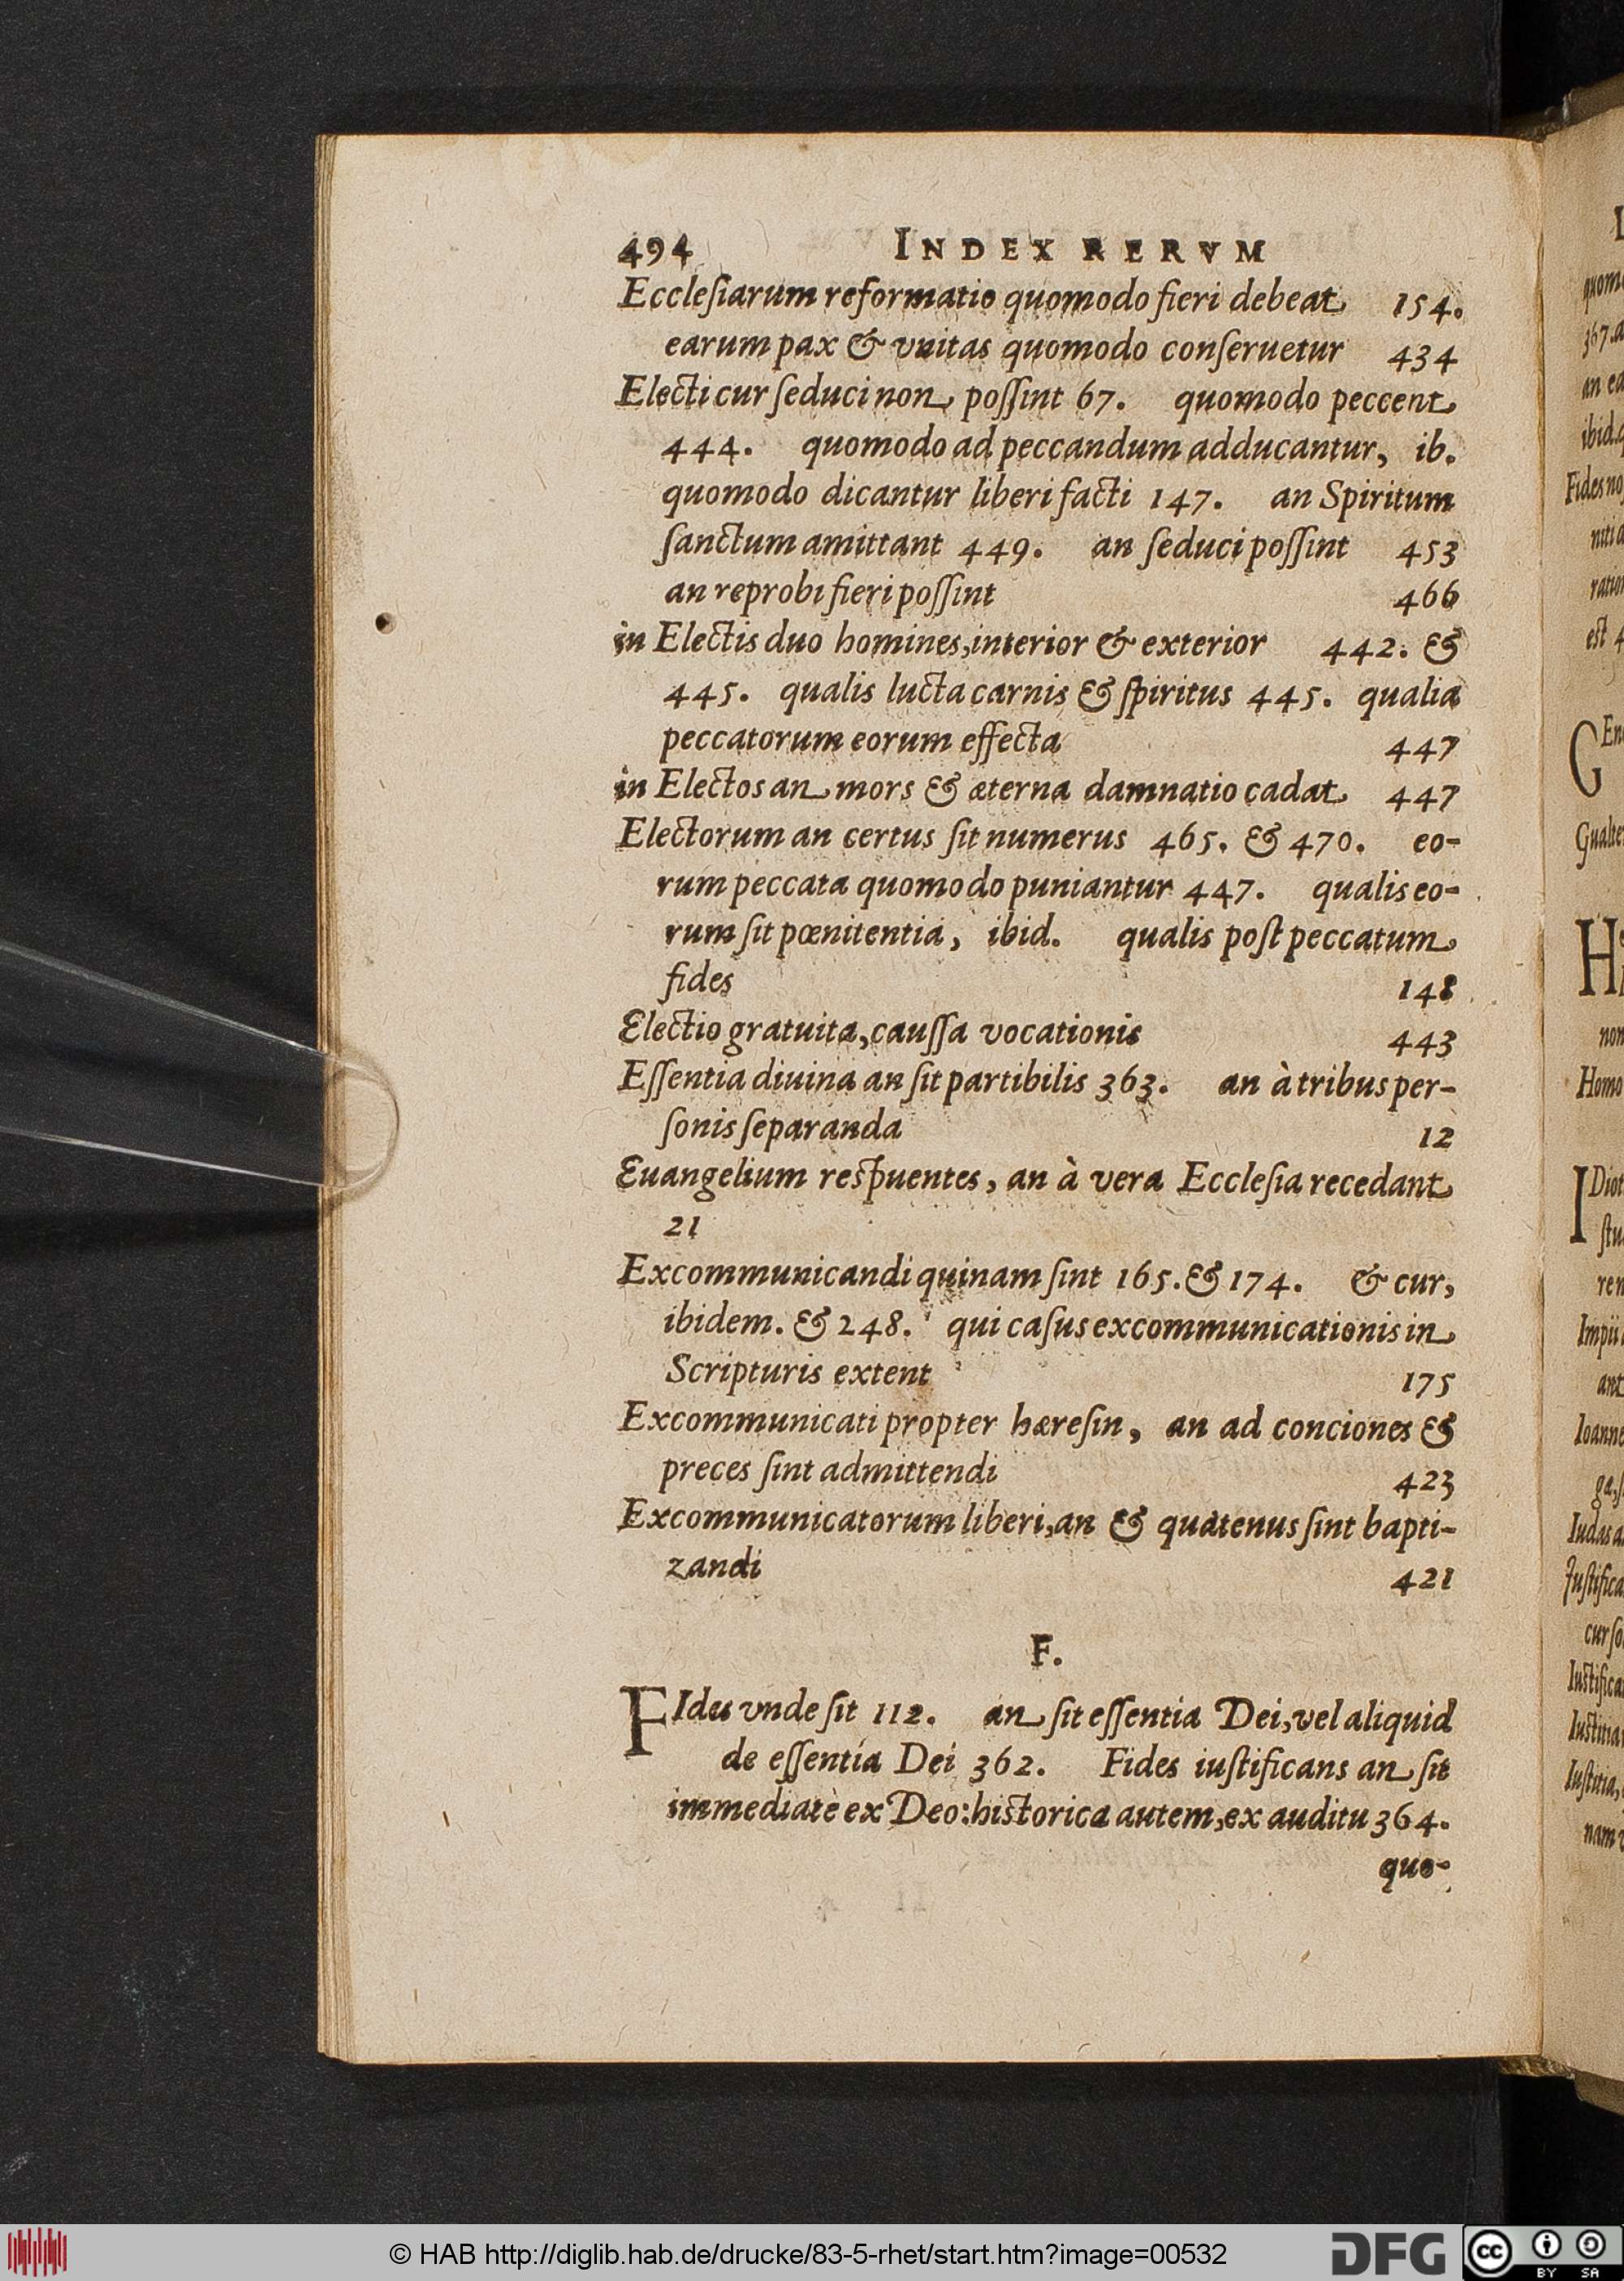 494 INDEX RERVM
Eccleſiarum reformatio quomodo fieri debeat 154.
earum pax & vnitas quomodo conſeruetur 434
Electi cur ſeduci non poſſint 67. quomodo peccent
444. quomodo ad peccandum adducantur, ib.
quomodo dicantur liberi facti 147. an Spiritum
ſanctum amittant 449. an ſeduci poſſint 453
an reprobi fieri poſſint 466
in Electis duo homines, interior & exterior 442. &
445. qualis lucta carnis & ſpiritus 445. qualia
peccatorum eorum effecta 447
in Electos an mors & æterna damnatio cadat 447
Electorum an certus ſit numerus 465. & 470. eo-
rum peccata quomodo puniantur 447. qualis eo-
rum ſit pœnitentia, ibid. qualis poſt peccatum
fides 148
Electio gratuita, cauſſa vocationis 443
Eſſentia diuina an ſit partibilis 363. an à tribus per-
ſonis ſeparanda 12
Euangelium reſpuentes, an à vera Eccleſia recedant
21
Excommunicandi quinam ſint 165. & 174. & cur,
ibidem. & 248. qui caſus excommunicationis in
Scripturis extent 175
Excommunicati propter hæreſin, an ad conciones &
preces ſint admittendi 423
Excommunicatorum liberi, an & quatenus ſint bapti-
zandi 421
F.
FIdes vnde ſit 112. an ſit eſſentia Dei, vel aliquid
de eſſentia Dei 362. Fides iuſtificans an ſit
immediatè ex Deo: hiſtorica autem, ex auditu 364.
quo-
© HAB http://diglib.hab.de/drucke/83-5-rhet/start.htm?image=00532
DFG
cc BY SA